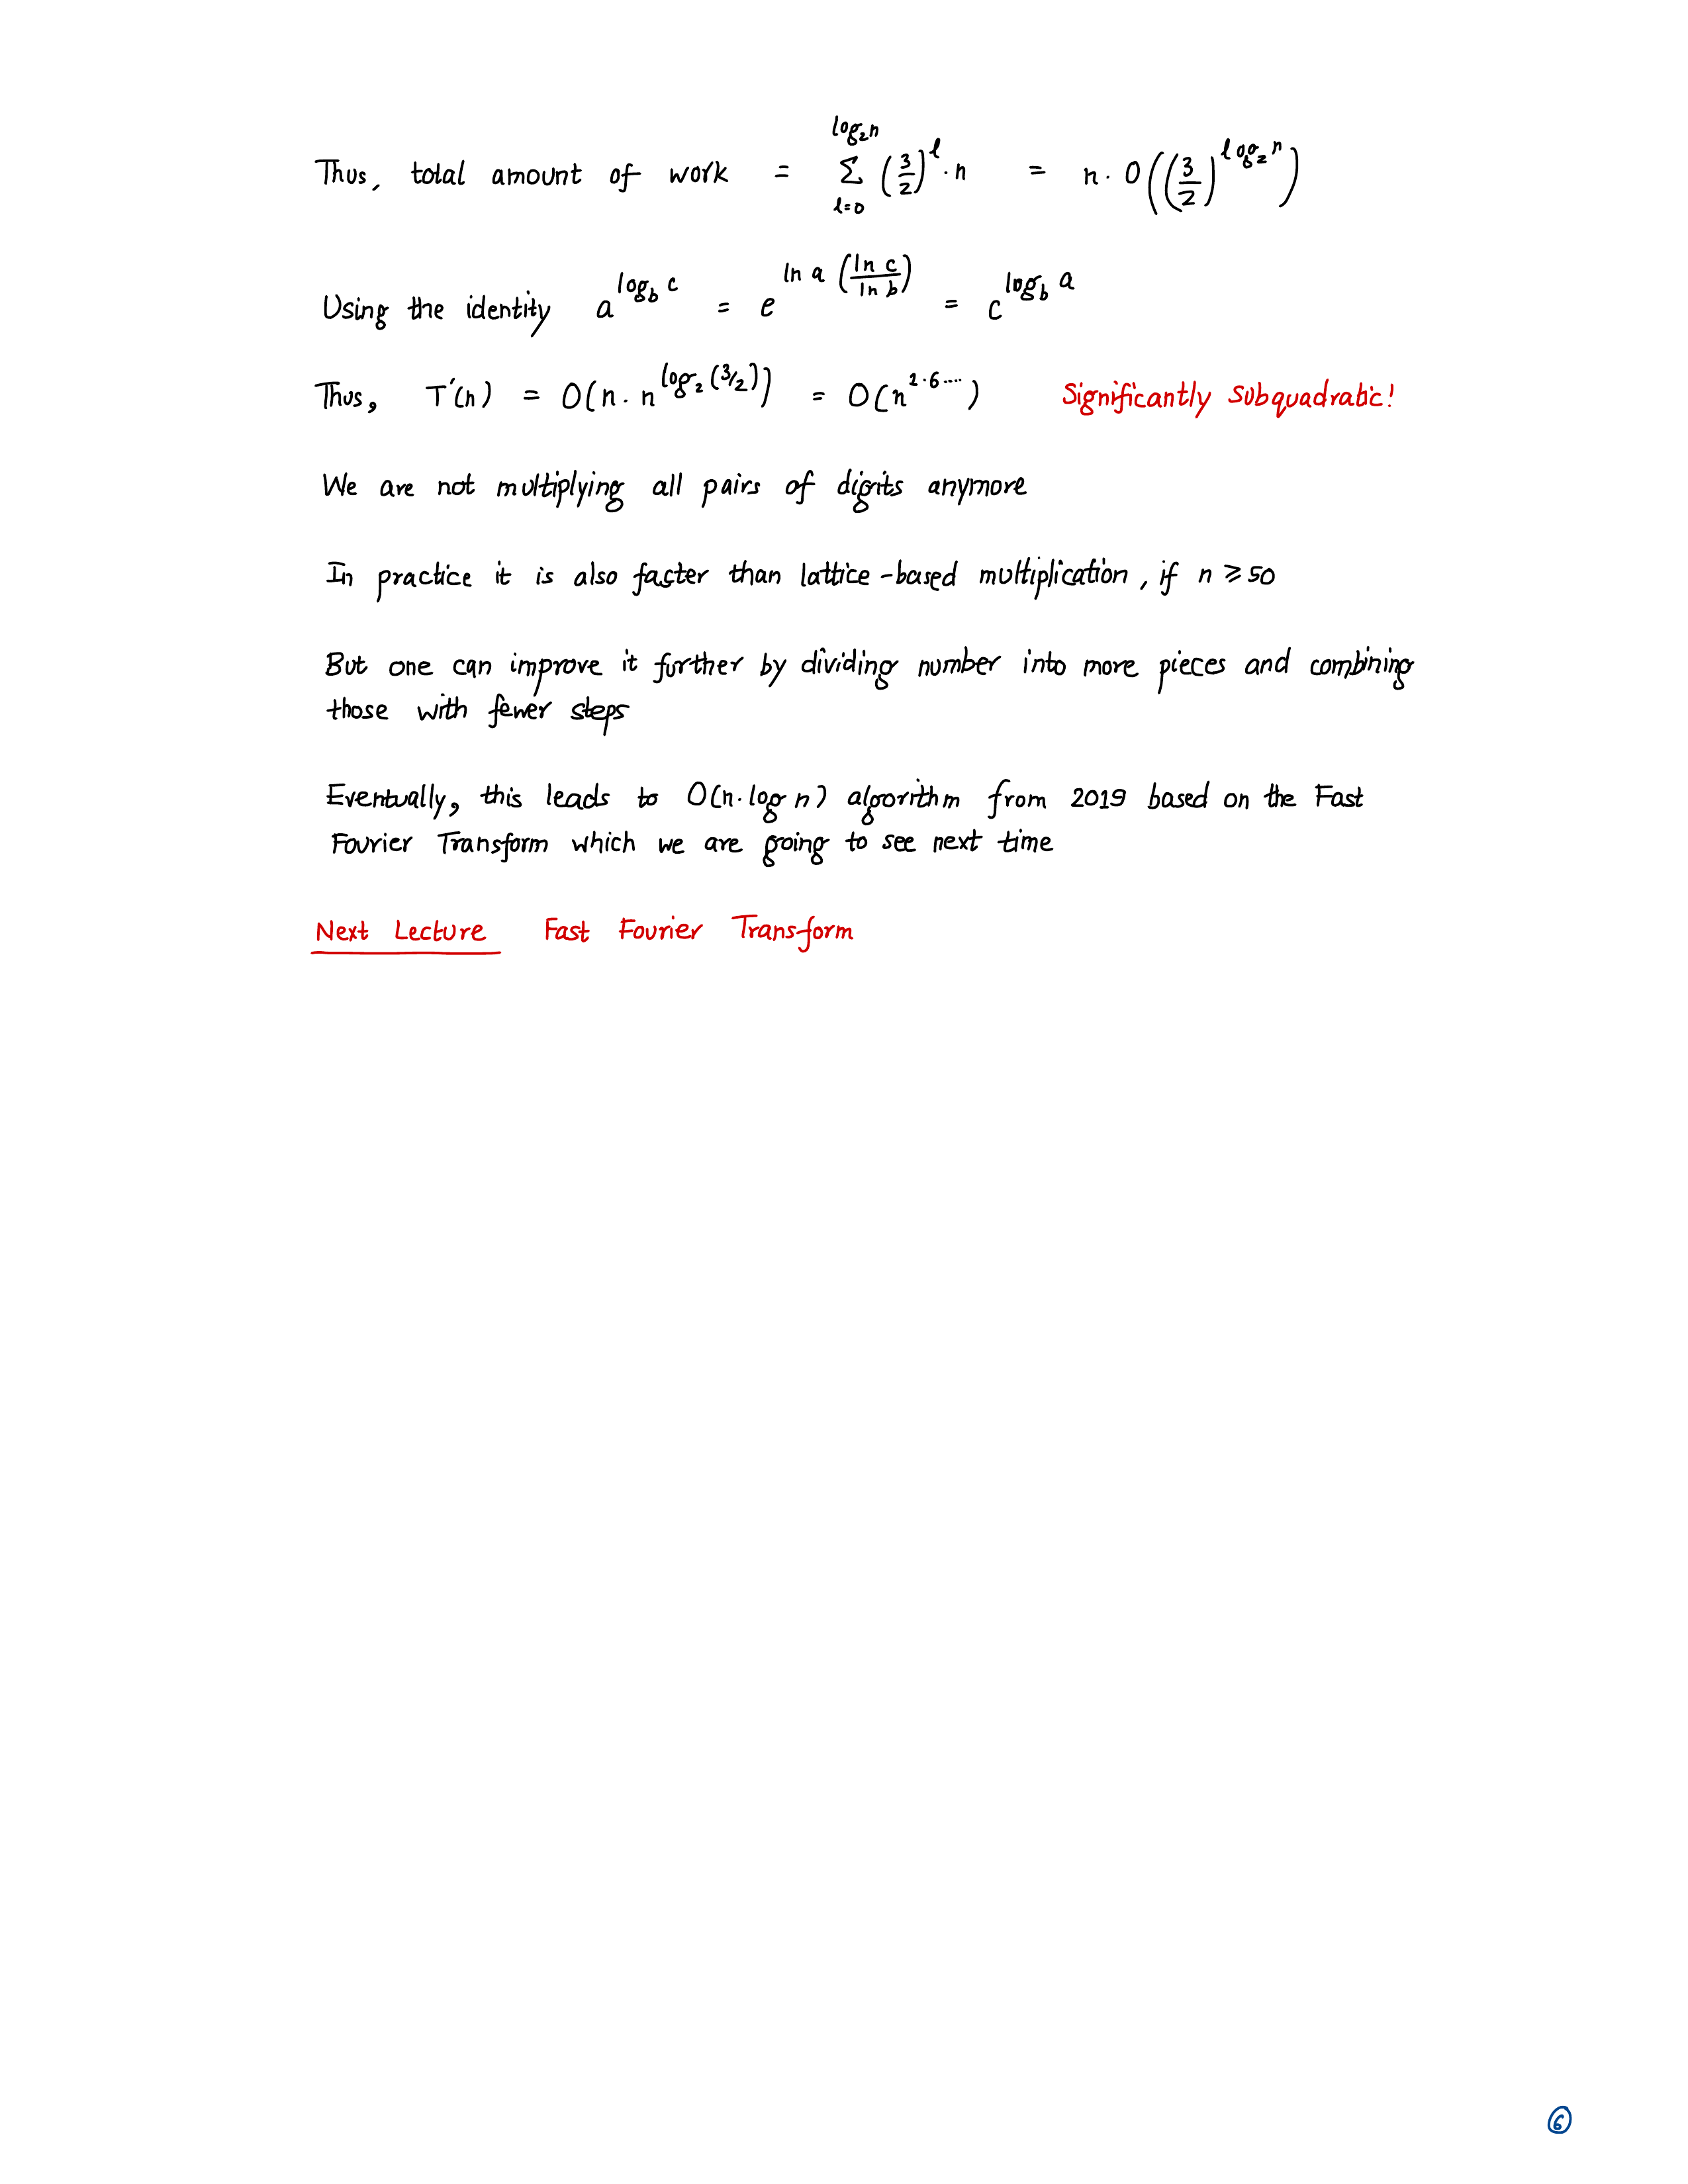 Thus, total amount of work = \sum_{l=0}^{log_2 n} (3/2)^l · n = n · O((3/2)^{log_2 n})
Using the identity a^{log_b c} = e^{ln a (ln c / ln b)} = c^{log_b a}
Thus, T'(n) = O(n · n^{log_2 (3/2)}) = O(n^{1.6....}) Significantly subquadratic!
We are not multiplying all pairs of digits anymore
In practice it is also faster than lattice-based multiplication, if n ≥ 50
But one can improve it further by dividing number into more pieces and combining
those with fewer steps
Eventually, this leads to O(n·log n) algorithm from 2019 based on the Fast
Fourier Transform which we are going to see next time
Next Lecture Fast Fourier Transform
6